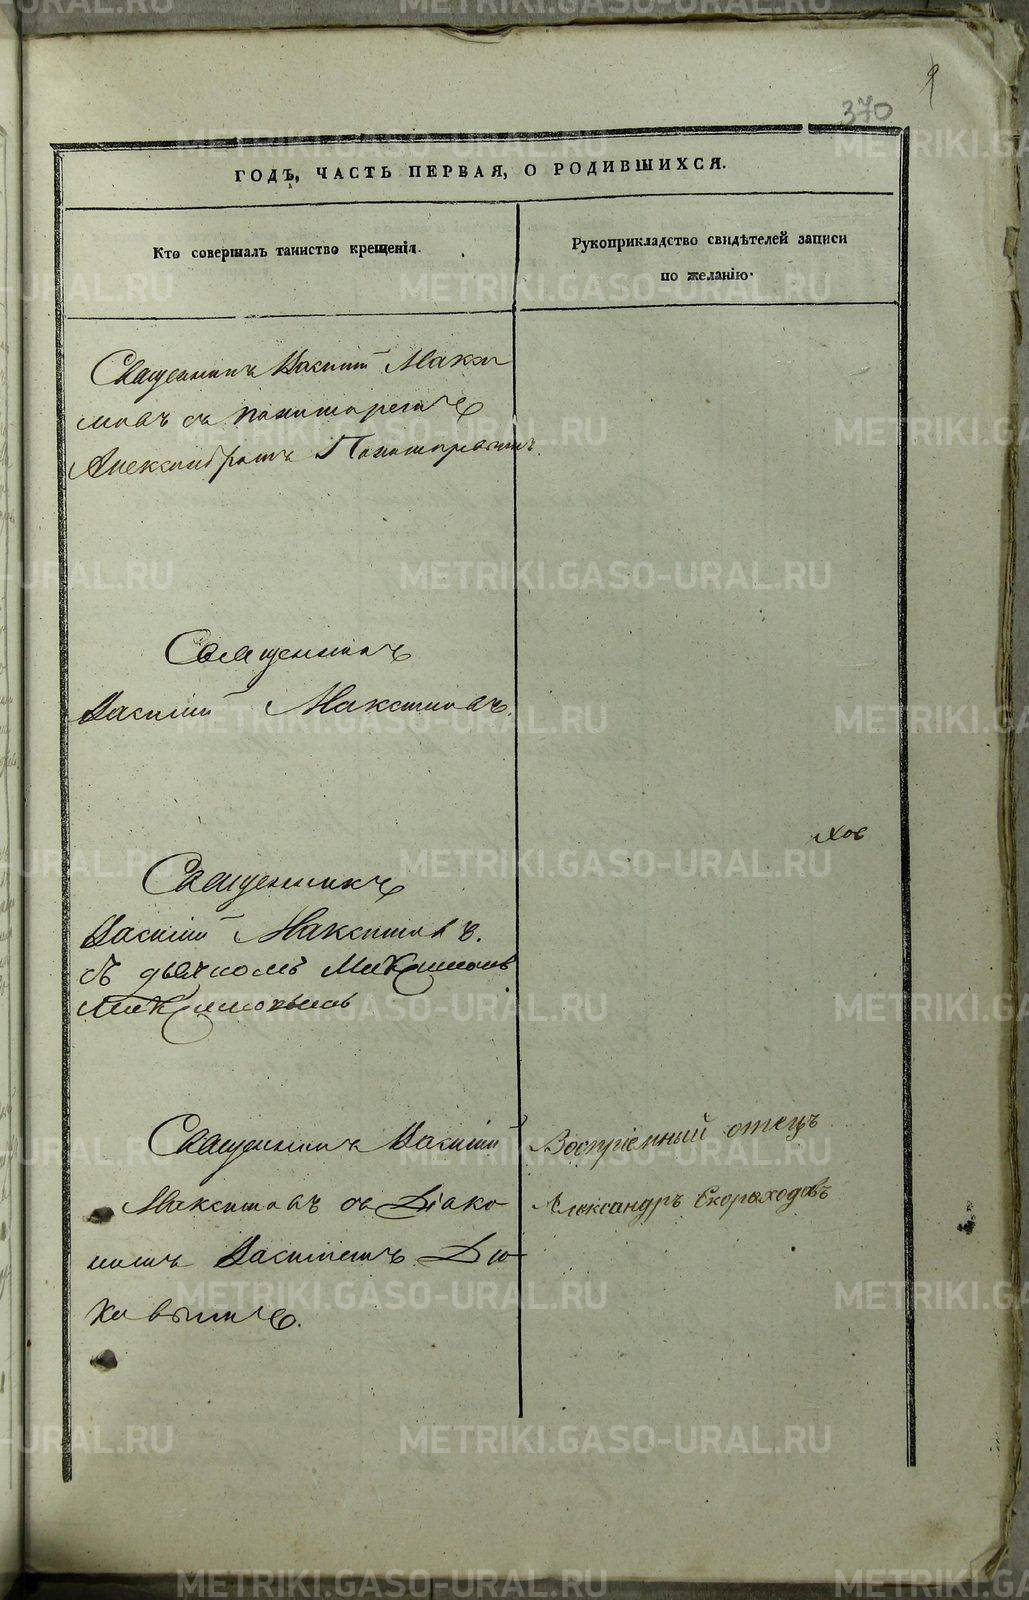 370
9
ГОДЪ, ЧАСТЬ ПЕРВАЯ, О РОДИВШИХСЯ.
Кто совершалъ таинство крещенія.
Рукоприкладство свидѣтелей записи
по желанію.
Священникъ Василій Макси
мовъ съ пономаремъ
Александромъ Пономаревымъ.
Священникъ
Василій Максимовъ.
Священникъ
Василій Максимовъ.
съ дьячкомъ
Священникъ Василій
Максимовъ съ Діако
номъ Василіемъ Дю
ковымъ.
Воспріемный отецъ
Александръ Скороходовъ
METRIKI.GASO-URAL.RU